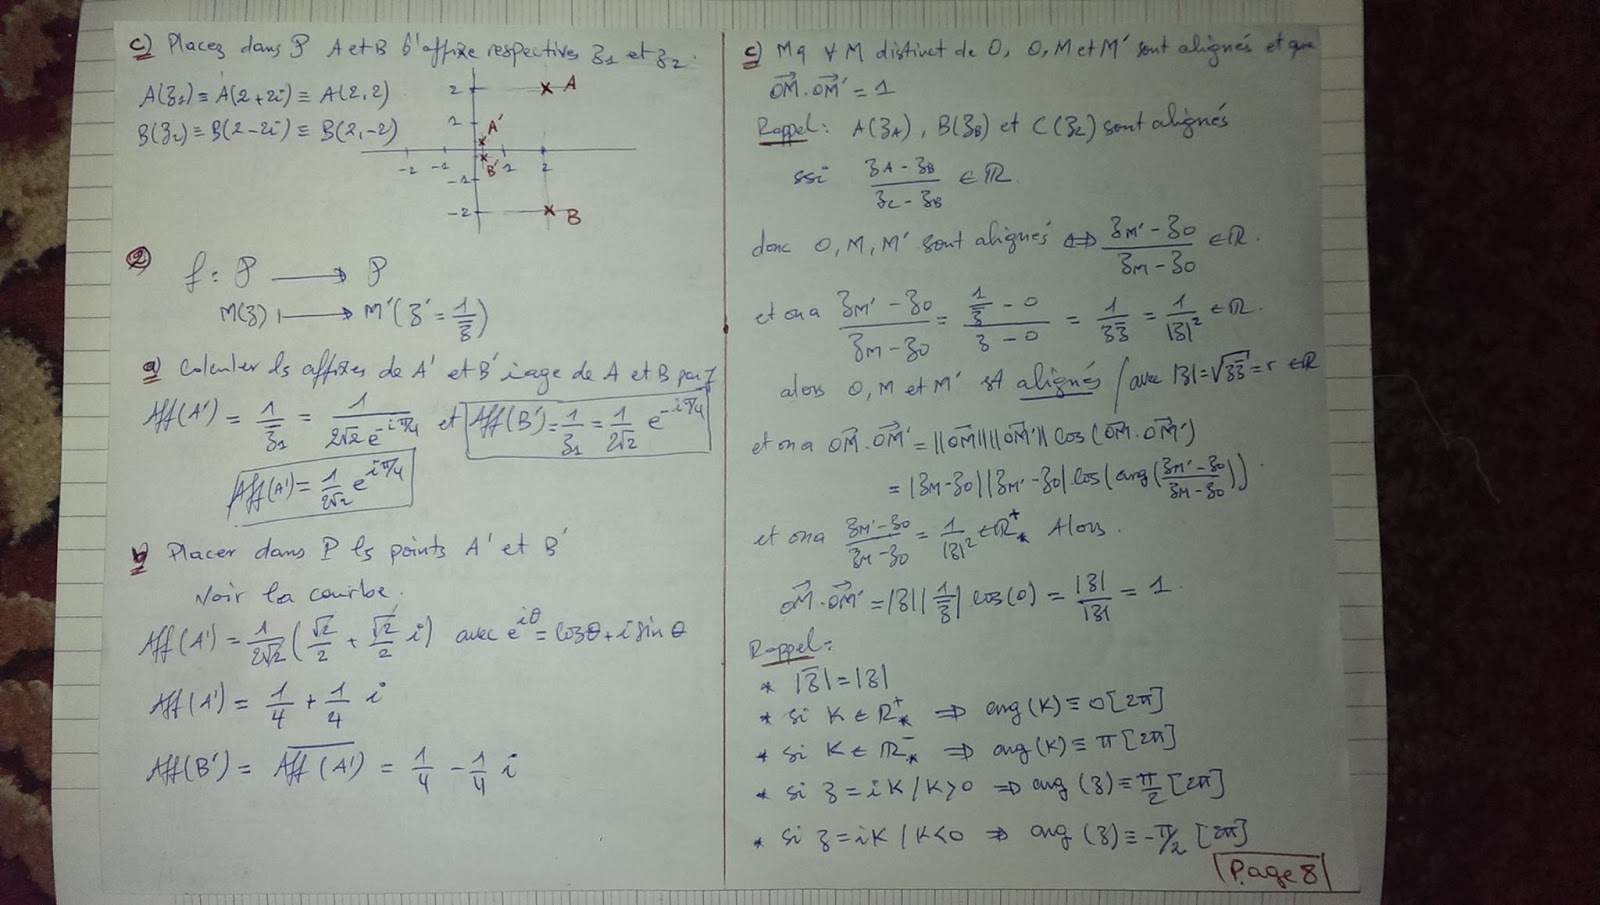 c) Placez dans P A et B d'affixe respectives z1 et z2.
A(z1) ≡ A(2+2i) ≡ A(2,2)
B(z2) ≡ B(2-2i) ≡ B(2,-2)
2
1
-1
-2
-2 -1 1 2
A
A'
B'
B
2) f : P ⟶ P
M(z) ⟼ M'(z' = 1/z̄)
a) Calculer ls affixes de A' et B' iage de A et B par f
Aff(A') = 1/z̄1 = 1/(2√2 e^(-iπ/4)) et Aff(B') = 1/z1 = 1/(2√2) e^(-iπ/4)
Aff(A') = 1/(2√2) e^(iπ/4)
b) Placer dans P ls points A' et B'
Voir la courbe.
Aff(A') = 1/(2√2) (√2/2 + √2/2 i) avec e^(iθ) = cosθ + i sin θ
Aff(A') = 1/4 + 1/4 i
Aff(B') = \overline{Aff(A')} = 1/4 - 1/4 i
c) Mq ∀ M distinct de O, O, M et M' sont alignés et que
OM⃗ . OM'⃗ = 1
Rappel: A(zA), B(zB) et C(zC) sont alignés
ssi (zA - zB)/(zC - zB) ∈ ℝ.
donc O, M, M' sont alignés ⟺ (zM' - zO)/(zM - zO) ∈ ℝ.
et on a (zM' - zO)/(zM - zO) = (1/z̄ - 0)/(z - 0) = 1/(z z̄) = 1/|z|² ∈ ℝ.
alors O, M et M' st alignés / avec |z| = √(z z̄) = r ∈ ℝ
et on a OM⃗ . OM'⃗ = ||OM⃗|| ||OM'⃗|| cos(OM⃗ . OM'⃗)
= |zM - zO| |zM' - zO| cos(arg((zM' - zO)/(zM - zO))).
et on a (zM' - zO)/(zM - zO) = 1/|z|² ∈ ℝ⁺* Alors.
OM⃗ . OM'⃗ = |z| |1/z̄| cos(0) = |z|/|z| = 1.
Rappel:
* |z̄| = |z|
* si K ∈ ℝ⁺* ⟹ arg(K) ≡ 0 [2π]
* si K ∈ ℝ⁻* ⟹ arg(K) ≡ π [2π]
* si z = iK / K>0 ⟹ arg(z) ≡ π/2 [2π]
* si z = iK / K<0 ⟹ arg(z) ≡ -π/2 [2π]
Page 8